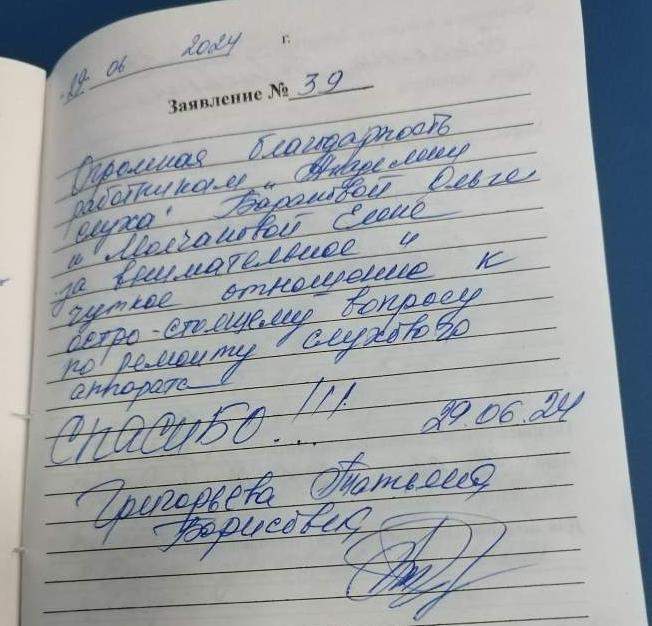 29 06 2024 г.
Заявление № 39
Огромная благодарность
работникам "Академии
слуха" Ольге
и Молчановой Елене
за внимательное и
чуткое отношение к
остро-стоящему вопросу
по ремонту слухового
аппарата
СПАСИБО...!!!
29.06.24
Григорьева Татьяна
Борисовна